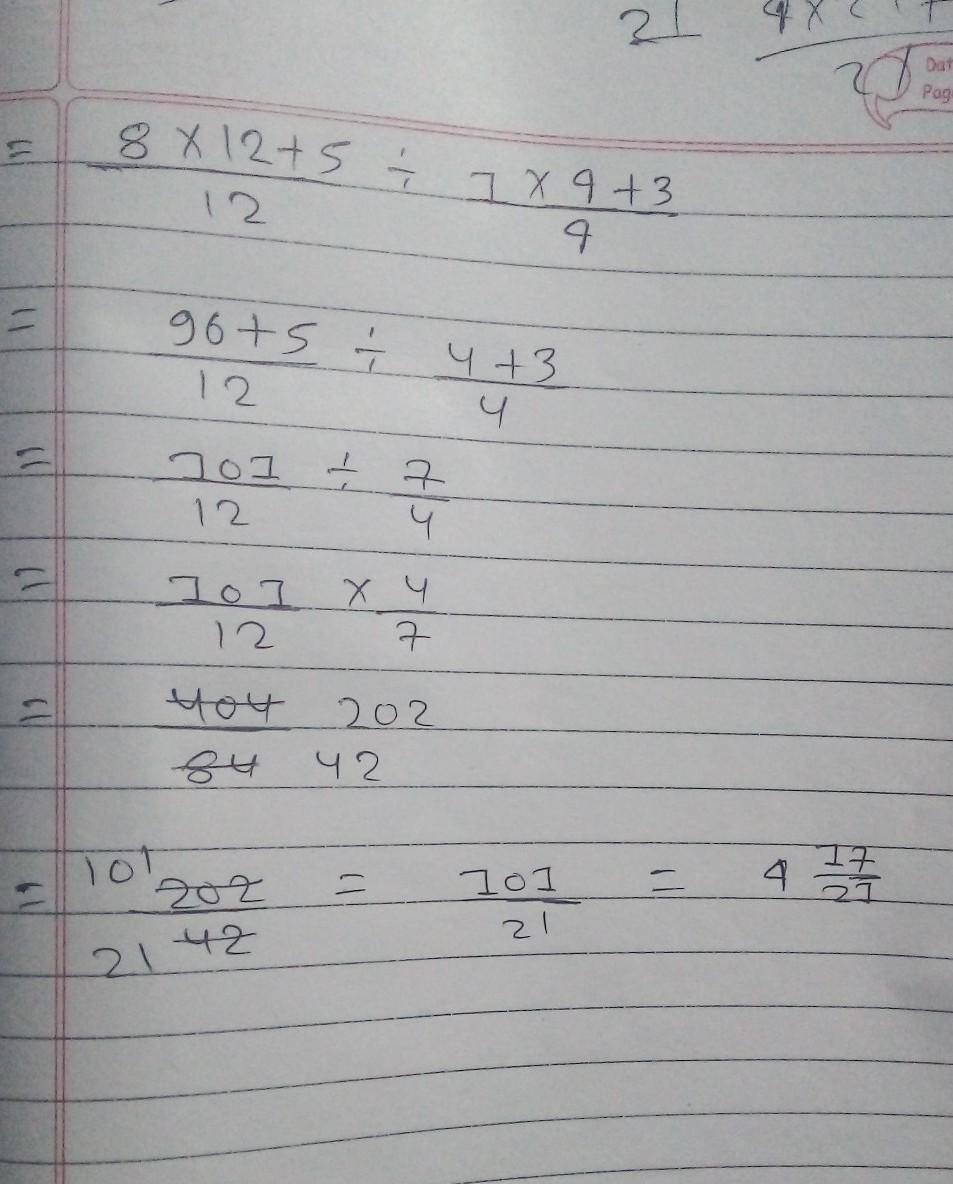 21 4×
21 Dat
Pag
= 8×12+5/12 ÷ 1×4+3/4
= 96+5/12 ÷ 4+3/4
= 101/12 ÷ 7/4
= 101/12 × 4/7
= 404/84 202/42
= 101 202/21 42 = 101/21 = 4 17/21